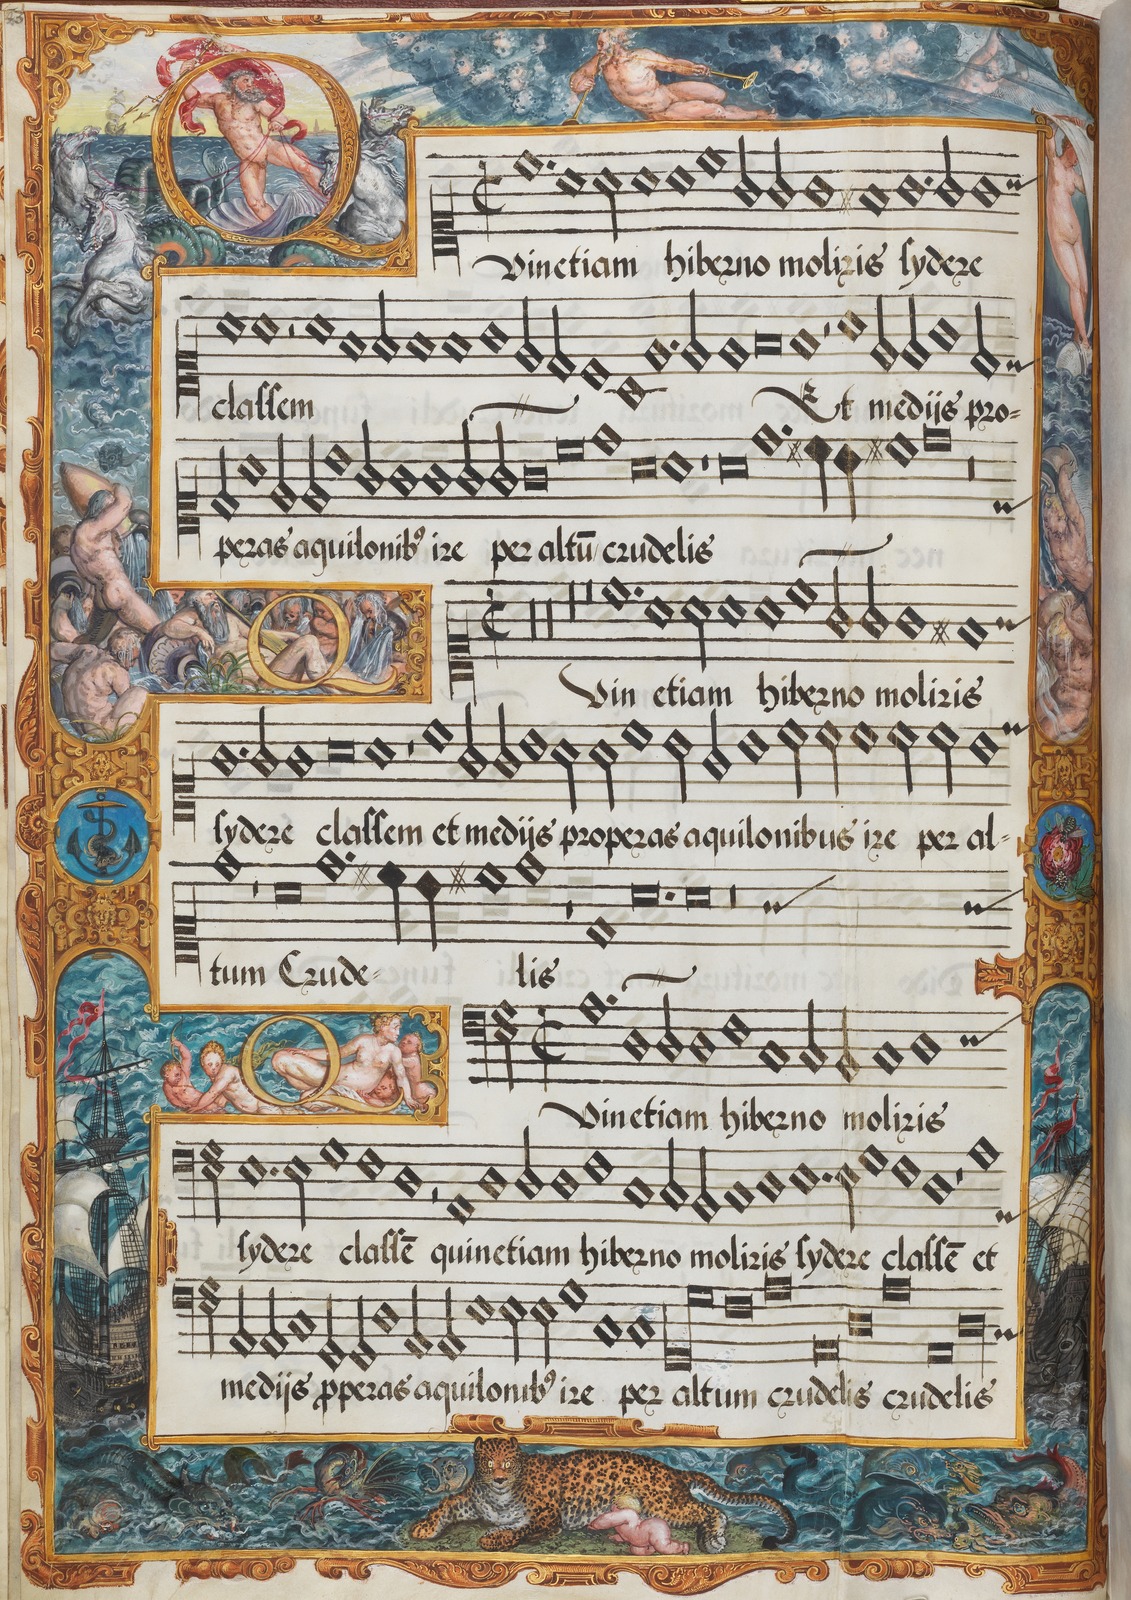 Quinetiam hiberno moliris sydere
classem Et medijs pro=
peras aquilonibꝰ ire per altū crudelis
Quin etiam hiberno moliris
sydere classem et medijs properas aquilonibus ire per al=
tum Crude= lis
Quinetiam hiberno moliris
sydere classē quinetiam hiberno moliris sydere classē et
medijs ꝓperas aquilonibꝰ ire per altum crudelis crudelis